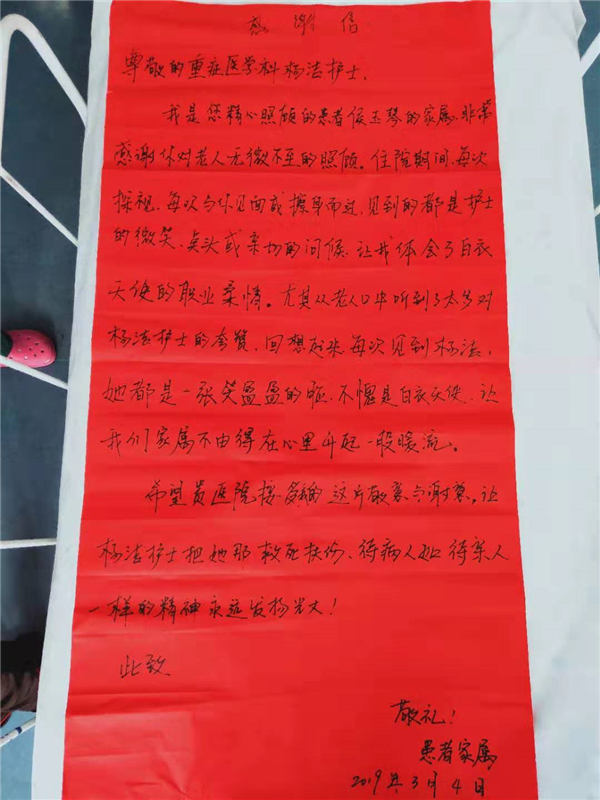 感谢信
尊敬的重症医学科杨洁护士、
我是您精心照顾的患者侯玉琴的家属、非常
感谢你对老人无微不至的照顾。住院期间、每次
探视、每次与你见面或擦身而过、见到的都是护士
的微笑、点头或亲切的问候、让我体会了白衣
天使的职业柔情。尤其从老人口中听到了太多对
杨洁护士的夸赞、回想起来、每次见到杨洁、
她都是一张笑盈盈的脸、不愧是白衣天使、让
我们家属不由得在心里升起一股暖流。
希望贵医院接我们这片敬意与谢意、让
杨洁护士把她那救死扶伤、待病人如待亲人
一样的精神永远发扬光大！
此致
敬礼！
患者家属
2019年3月4日